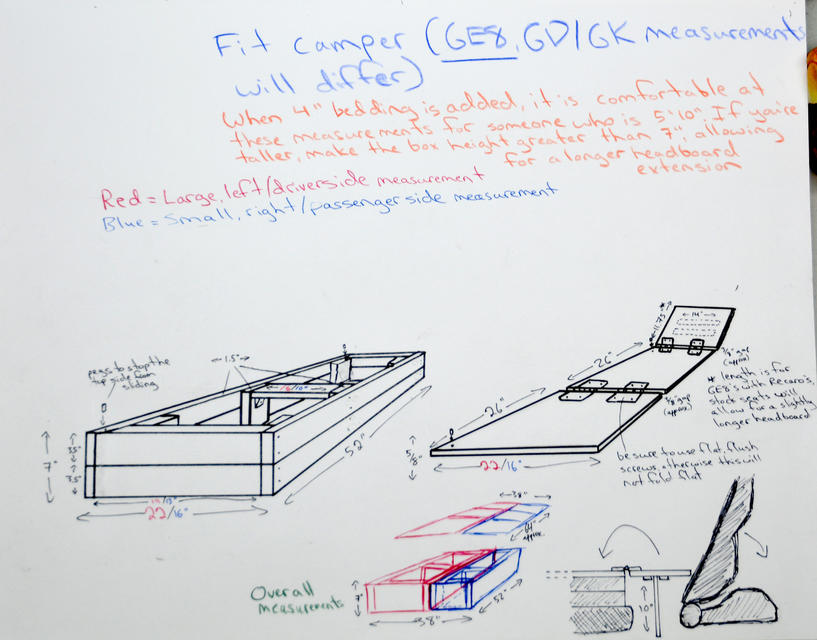 Fit camper (GE8, GD/GK measurements
will differ)
When 4" bedding is added, it is comfortable at
these measurements for someone who is 5'10". If you're
taller, make the box height greater than 7", allowing
for a longer headboard
extension
Red = Large, left/driverside measurement
Blue = Small, right/passenger side measurement
pegs to stop the
top side from
sliding
1.5"
7"
3.5"
3.5"
52"
22/16"
11.75"
14"
26"
26"
3/8" gap
(approx)
3/8" gap
(approx)
* length is for
GE8's with Recaro's,
stock seats will
allow for a slightly
longer headboard
5/8"
22/16"
be sure to use flat, flush
screws, otherwise this will
not fold flat
Overall
measurements
38"
64"
approx
7"
52"
38"
10"